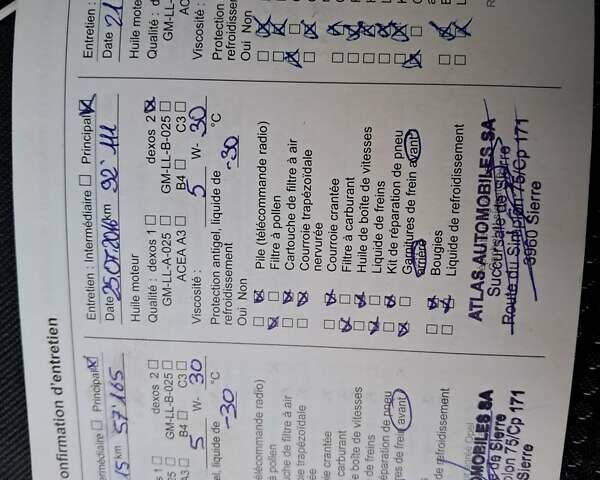 onfirmation d'entretien
Entretien :
Date 21
Huile moteur
Qualité : d
GM-LL-
ACEA
Viscosité :
Protection
refroidissement
Oui Non
Entretien : Intermédiaire ☐ Principal ☒
Date 25.07.2016 km 92'111
Huile moteur
Qualité : dexos 1 ☐ dexos 2 ☒
GM-LL-A-025 ☐ GM-LL-B-025 ☐
ACEA A3 ☐ B4 ☐ C3 ☐
Viscosité : 5 W- 30
Protection antigel, liquide de
refroidissement -30 °C
Oui Non
Pile (télécommande radio)
Filtre à pollen
Cartouche de filtre à air
Courroie trapézoïdale
nervurée
Courroie crantée
Filtre à carburant
Huile de boîte de vitesses
Liquide de freins
Kit de réparation de pneu
Garnitures de frein avant
arrière
Bougies
Liquide de refroidissement
ATLAS AUTOMOBILES SA
Succursale de Sierre
Route du Simplon 75/Cp 171
3960 Sierre
ermédiaire ☐ Principal ☒
15 km 57'165
s 1 ☐ dexos 2 ☐
025 ☐ GM-LL-B-025 ☐
A3 ☐ B4 ☐ C3 ☐
5 W- 30
el, liquide de
-30 °C
élécommande radio)
à pollen
che de filtre à air
e trapézoïdale
e crantée
carburant
e boîte de vitesses
e de freins
éparation de pneu
es de frein avant
e refroidissement
OMOBILES SA
e de Sierre
plon 75/Cp 171
Sierre